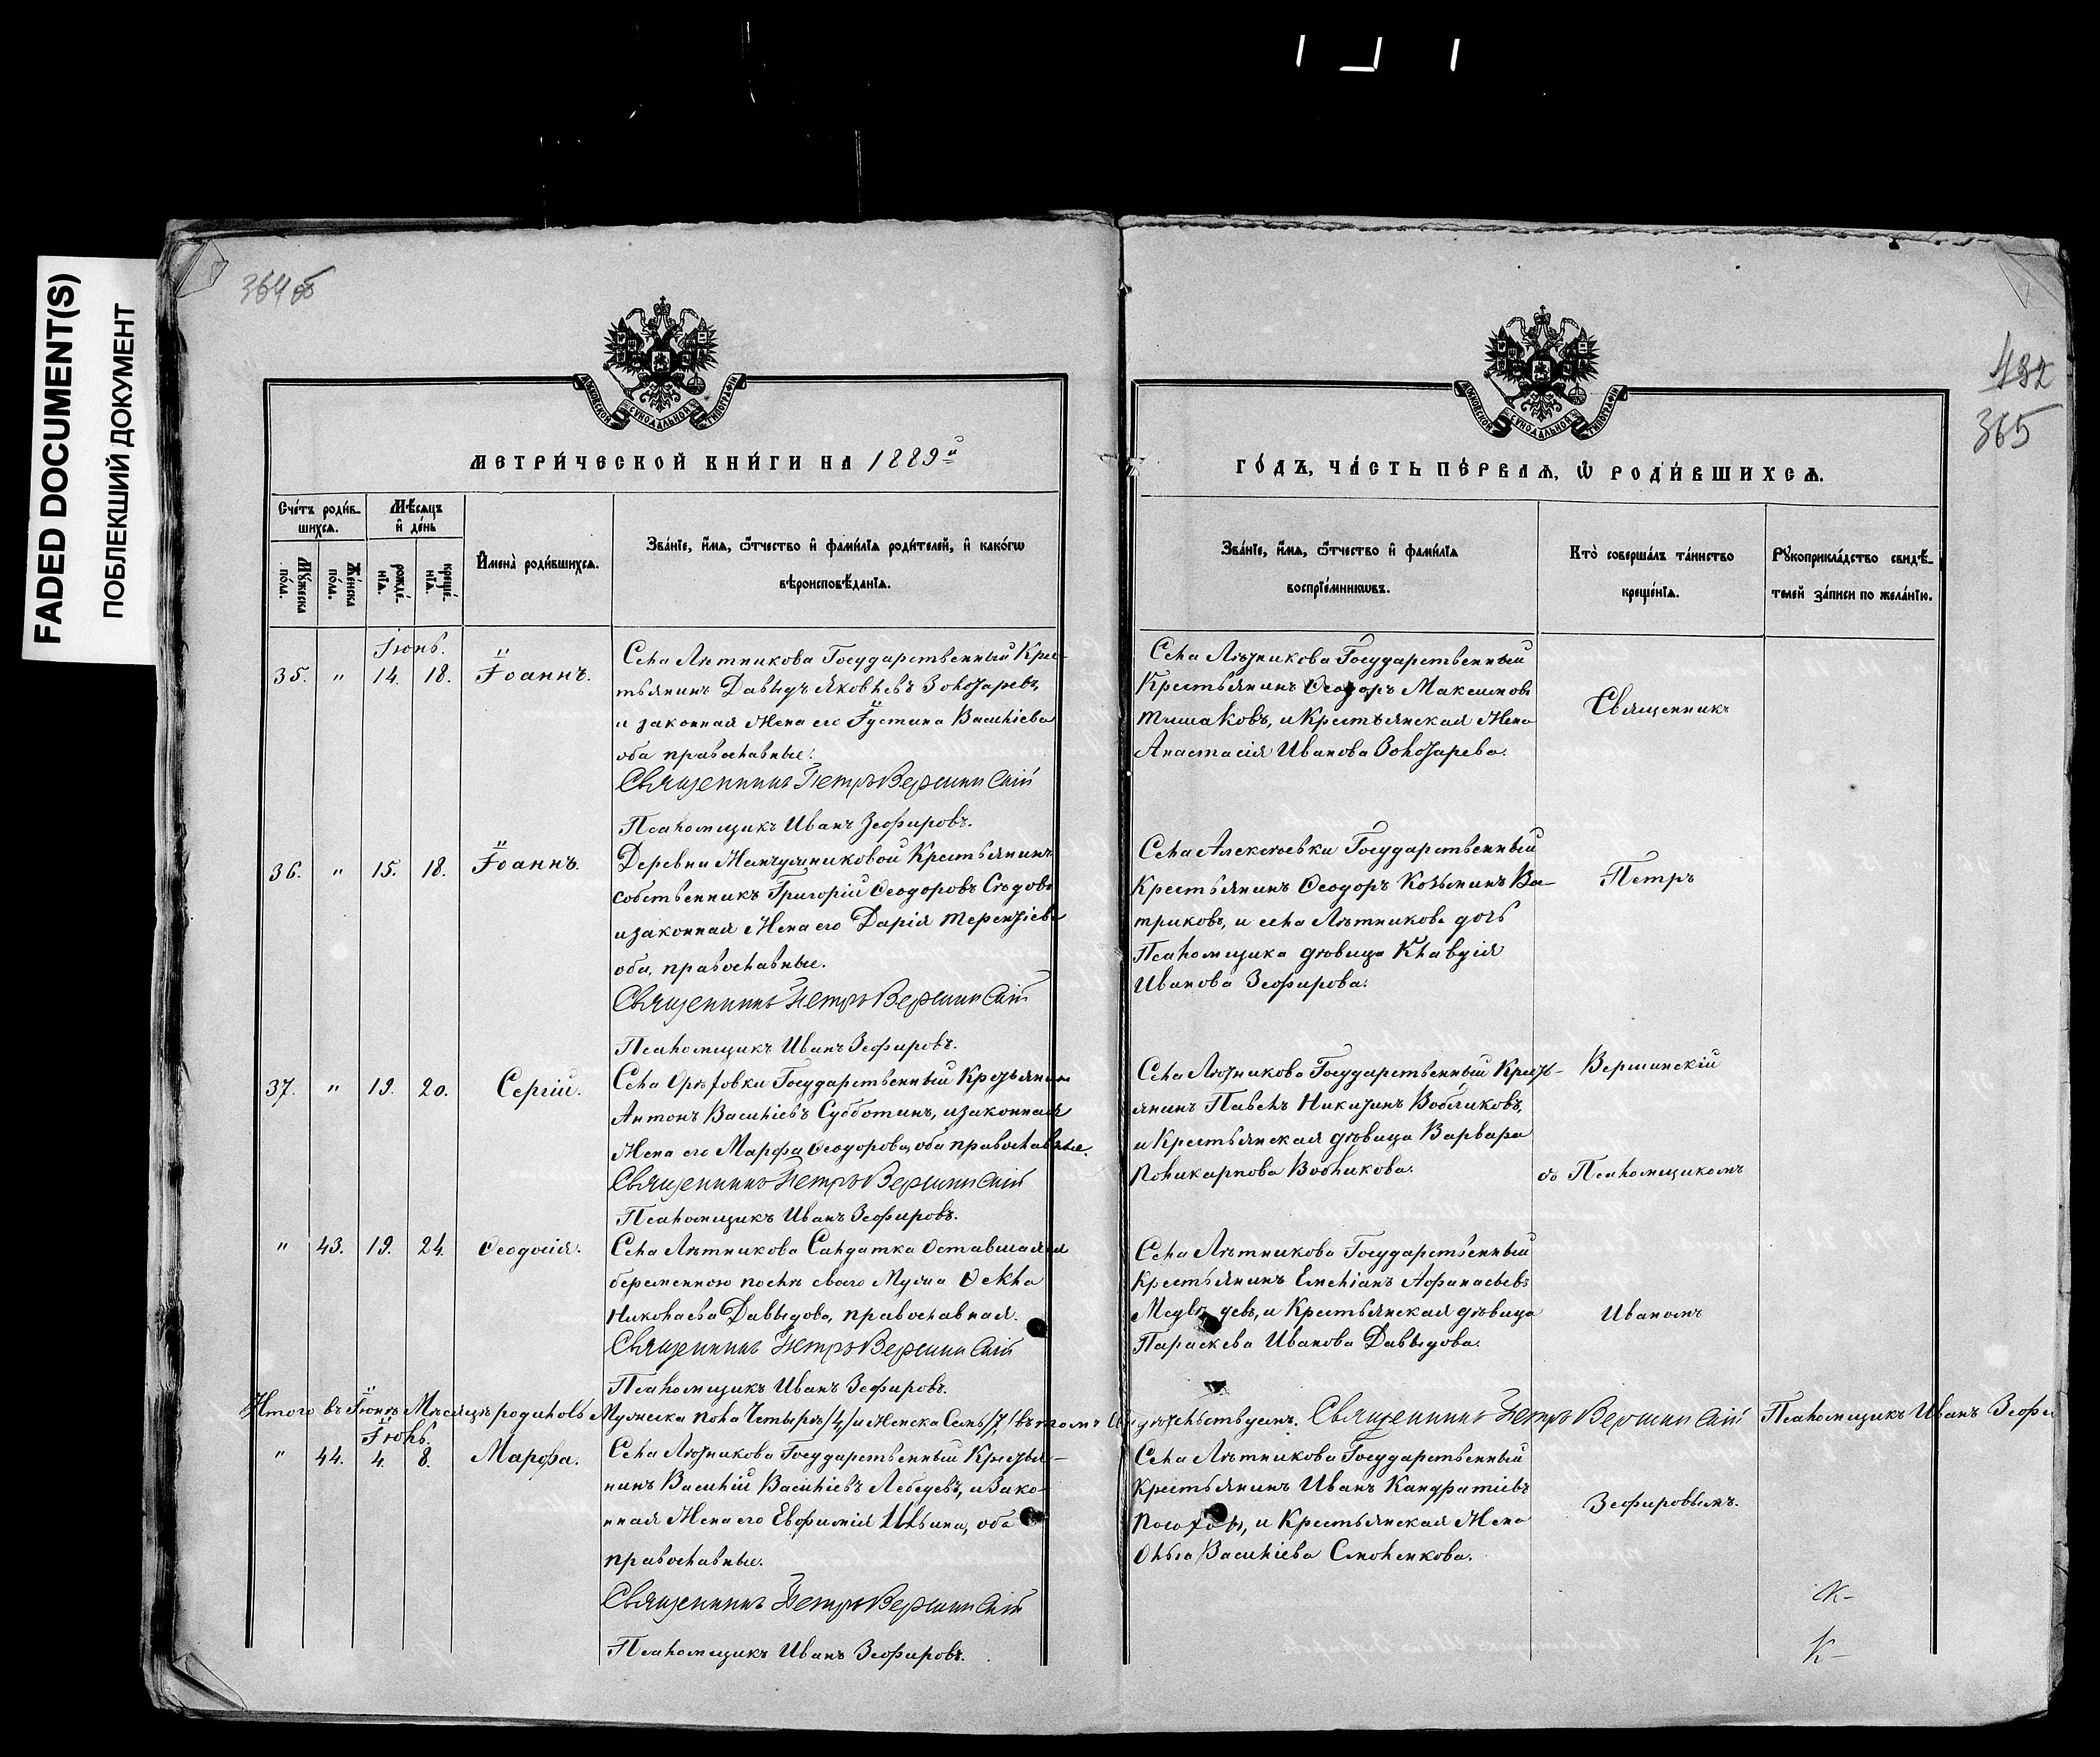 FADED DOCUMENT(S)
ПОБЛЕКШИЙ ДОКУМЕНТ
364 об
482
365
МОСКОВСКОЙ СѴНОДАЛЬНОЙ ТИПОГРАФІИ
МОСКОВСКОЙ СѴНОДАЛЬНОЙ ТИПОГРАФІИ
МЕТРИ́ЧЕСКОЙ КНИ́ГИ НА 1889й
ГО́ДЪ, ЧА́СТЬ ПЕ́РВАѦ, Ѽ РОДИ́ВШИХСѦ.
Сче́тъ роди́в-
шихсѧ.
Мѣ́сѧцъ
и҆ де́нь
Мꙋ́жеска
по́ла.
Же́нска
по́ла.
рожде́-
нїѧ.
креще́-
нїѧ.
И҆мена̀ роди́вшихсѧ.
Зва́нїе, и҆́мѧ, ѻ҆́тчество и҆ фами́лїѧ роди́телей, и҆ како́гѡ
вѣроисповѣ́данїѧ.
Зва́нїе, и҆́мѧ, ѻ҆́тчество и҆ фами́лїѧ
воспрїе́мникѡвъ.
Кто̀ соверша́лъ та́инство
креще́нїѧ.
Рꙋкоприкла́дство свидѣ́-
телей за́писи по жела́нїю.
Іюнь.
35. " 14. 18. Іоаннъ.
Села Лѣтникова Государственный Кре-
тьянинъ Давыдъ Яковлевъ Золотаревъ,
и законная Жена его Іустина Василіева
оба православные.
Священникъ Петръ Вершинскій
Псаломщикъ Иванъ Зефировъ.
Села Лѣтникова Государственный
Крестьянинъ Ѳеодоръ Максимовъ
Тишаковъ, и Крестьянская Жена
Анастасія Иванова Золотарева.
Священникъ
36. " 15. 18. Іоаннъ.
Деревни Жемчужниковой Крестьянинъ
собственникъ Григорій Ѳеодоровъ Сѣдовъ
и законная Жена его Дарія Терентіева
оба, православные.
Священникъ Петръ Вершинскій
Псаломщикъ Иванъ Зефировъ.
Села Алексѣевки Государственный
Крестьянинъ Ѳеодоръ Козьминъ Ва-
триковъ, и села Лѣтникова дочь
Псаломщика дѣвица Клавдія
Иванова Зефирова.
Петръ
37. " 19. 20. Сергій.
Села Орѣховки Государственный Крестьянинъ
Антонъ Василіевъ Субботинъ, и законная
Жена его Марѳа Ѳеодорова, оба православные.
Священникъ Петръ Вершинскій
Псаломщикъ Иванъ Зефировъ.
Села Лѣтникова Государственный Кресть-
янинъ Павелъ Никитинъ Вобликовъ,
и Крестьянская дѣвица Варвара
Поликарпова Вобликова.
Вершинскій
съ Псаломщикомъ
" 43. 19. 24. Ѳеодосія.
Села Лѣтникова Салдатка Оставшаяся
беременною послѣ своего Мужа Ѳекла
Николаева Давыдова, православная.
Священникъ Петръ Вершинскій
Псаломщикъ Иванъ Зефировъ.
Села Лѣтникова Государственный
Крестьянинъ Емеліанъ Аѳанасьевъ
Медвѣдевъ, и Крестьянская дѣвица
Параскева Иванова Давыдова.
Иваномъ
Итого въ Іюнѣ Мѣсяцѣ родилось Мужеска пола Четыре /4/ и Женска Семь /7/ въ томъ Свидѣтельствуемъ. Священникъ Петръ Вершинскій Псаломщикъ Иванъ Зефи
Іюль.
" 44. 4. 8. Марѳа.
Села Лѣтникова Государственный Крестья-
нинъ Василій Василіевъ Лебедевъ, и Зако-
нная Жена его Евфимія Ильина, оба
православные.
Священникъ Петръ Вершинскій
Псаломщикъ Иванъ Зефировъ.
Села Лѣтникова Государственный
Крестьянинъ Иванъ Кандратіевъ
и Крестьянская Жена
Ольга Василіева Смоленкова.
Зефировымъ.
К-
К-